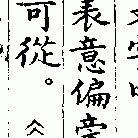 表意偏旁
可從。《